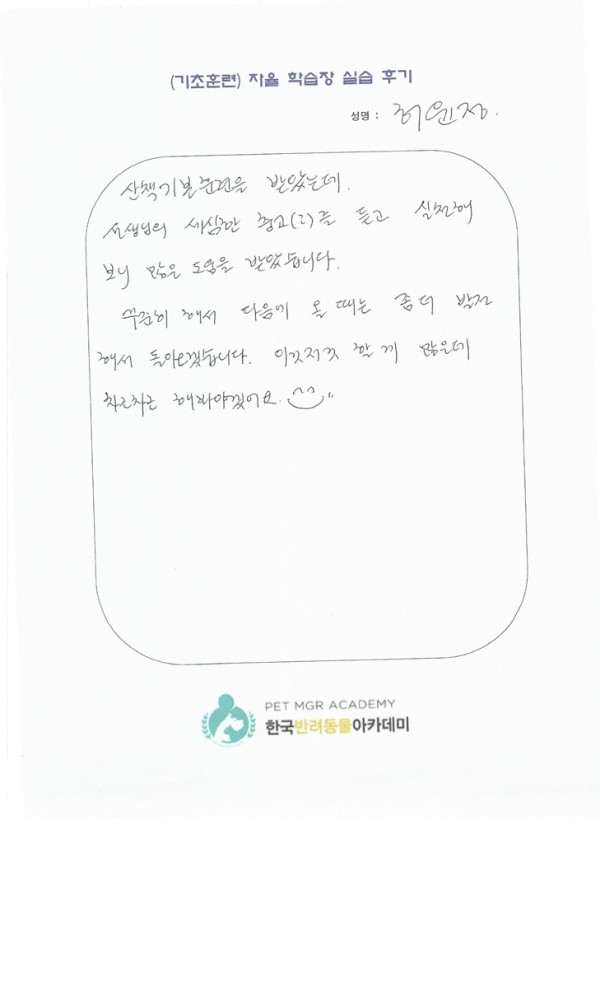 (기초훈련) 자율 학습장 실습 후기
성명 : 허윤정.
산책기본훈련을 받았는데.
선생님의 세심한 충고(?)를 듣고 실천해
보니 많은 도움을 받았습니다.
꾸준히 해서 다음에 올 때는 좀더 발전
해서 돌아오겠습니다. 이것저것 할게 많은데
차근차근 해봐야겠어요.
PET MGR ACADEMY
한국반려동물아카데미